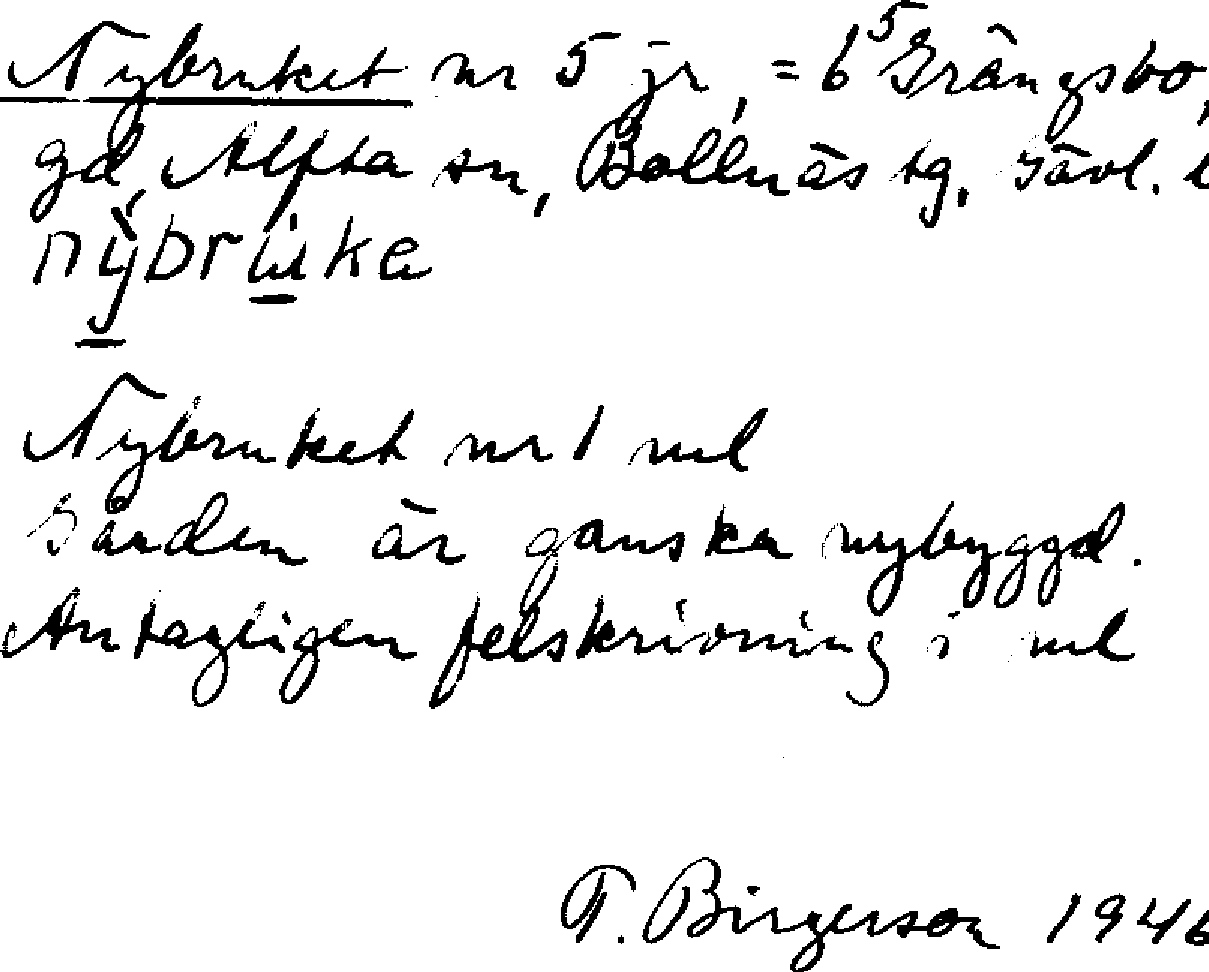 Nybruket nr 5 jr, = 6⁵ Grängsbo,
gd, Alfta sn, Bollnäs tg, Gävl. l
nỳbrùka
Nybruket nr 1 ml
Gården är ganska nybyggd.
Antagligen felskrivning i ml
T. Birgerson 1946